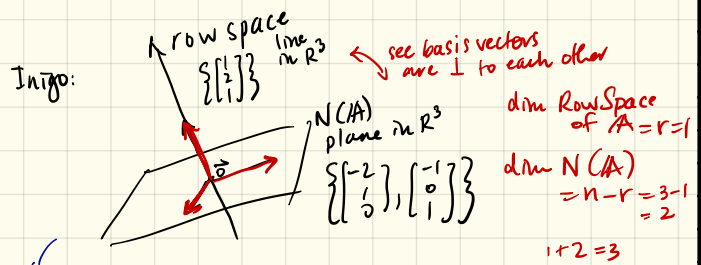 row space
line
in R³
{[1 2 1]}
Inigo:
see basis vectors
are ⊥ to each other
N(A)
plane in R³
{[-2 1 0], [-1 0 1]}
0⃗
dim RowSpace
of A = r = 1
dim N(A)
= n - r = 3 - 1
= 2
1 + 2 = 3